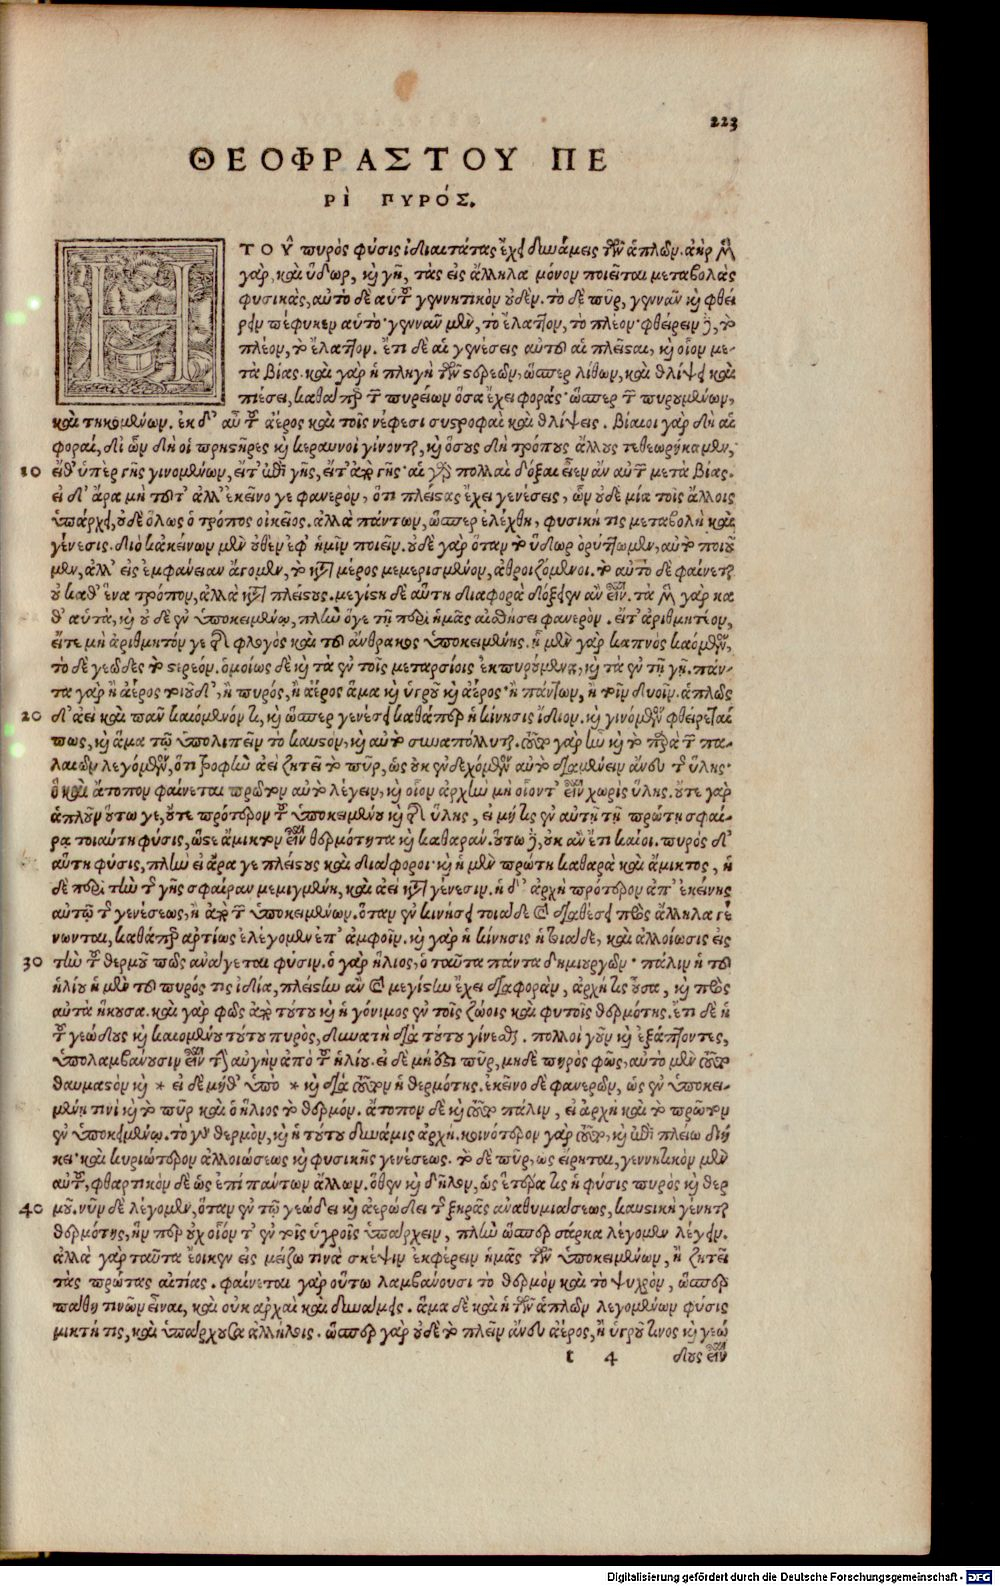 223
ΘΕΟΦΡΑΣΤΟΥ ΠΕ
ΡῚ ΠΥΡΌΣ.
Η ΤΟΥ͂ πυρὸς φύσις ἰδιαιτάτας ἔχει δυνάμεις τῶν ἁπλῶν. ἀὴρ μὲν
γὰρ, καὶ ὕδωρ, καὶ γῆ, τὰς εἰς ἄλληλα μόνον ποιεῖται μεταβολὰς
φυσικὰς, αὐτὸ δὲ αὑτοῦ γεννητικὸν οὐδέν. τὸ δὲ πῦρ, γεννᾶν καὶ φθεί
ρειν πέφυκεν αὑτό· γεννᾶν μὲν, τὸ ἔλαττον, τὸ πλέον· φθείρειν δὲ, τὸ
πλέον, τὸ ἔλαττον. ἔτι δὲ αἱ γενέσεις αὐτοῦ αἱ πλεῖσαι, καὶ οἷον με-
τὰ βίας. καὶ γὰρ ἡ πληγὴ τῶν στερεῶν, ὥσπερ λίθων, καὶ θλίψει καὶ
πιέσει, καθάπερ τῶν πυρείων ὅσα ἔχει φοράς· ὥσπερ τῶν πυρουμένων,
καὶ τηκομένων. ἐκ δ' αὖ τοῦ ἀέρος καὶ τοῖς νέφεσι συστροφαὶ καὶ θλίψεις. βίαιοι γὰρ δὴ αἱ
φοραί, δι' ὧν δὴ οἱ πρηστῆρες καὶ κεραυνοὶ γίνονται, καὶ ὅσους δὴ τρόπους ἄλλους τεθεωρήκαμεν,
10 εἴθ' ὑπὲρ γῆς γινομένων, εἴτ' ἐπὶ γῆς, εἴτ' ἀπὸ γῆς· αἱ γὰρ πολλαὶ δόξαι εἶεν ἂν αὐτῶν μετὰ βίας.
εἰ δ' ἄρα μὴ τοῦτ' ἀλλ' ἐκεῖνο γε φανερὸν, ὅτι πλείστας ἔχει γενέσεις, ὧν οὐδὲ μία τοῖς ἄλλοις
ὑπάρχει, οὐδὲ ὅλως ὁ τρόπος οἰκεῖος. ἀλλὰ πάντων, ὥσπερ ἐλέχθη, φυσική τις μεταβολὴ καὶ
γένεσις. διὸ κἀκείνων μὲν οὐθὲν ἐφ' ἡμῖν ποιεῖν. οὐδὲ γὰρ ὅταν τὸ ὕδωρ ὀρύττωμεν, αὐτὸ ποιοῦ
μεν, ἀλλ' εἰς ἐμφάνειαν ἄγομεν, τὸ κατὰ μέρος μεμερισμένον, ἀθροιζόμενοι. τὸ αὐτὸ δὲ φαίνεται
οὐ καθ' ἕνα τρόπον, ἀλλὰ κατὰ πλείους. μεγίστη δὲ αὕτη διαφορὰ δόξειεν ἂν εἶναι. τὰ μὲν γὰρ κα
θ' αὑτὰ, καὶ οὐδὲν ἐν ὑποκειμένῳ, πλὴν ὅγε τῇ περὶ ἡμᾶς αἰσθήσει φανερόν. εἴτ' ἀριθμητέον,
εἴτε μὴ ἀριθμητόν γε τῆς φλογὸς καὶ τοῦ ἄνθρακος ὑποκειμένης. ἡ μὲν γὰρ καπνὸς καόμενος,
τὸ δὲ γεῶδες τὸ στερεόν. ὁμοίως δὲ καὶ τὰ ἐν τοῖς μεταρσίοις ἐκπυρούμενα, καὶ τὰ ἐν τῇ γῇ. πάν-
τα γὰρ ἢ ἀέρος τοῦδ', ἢ πυρός, ἢ ἀέρος ἅμα καὶ ὑγροῦ καὶ ἀέρος· ἢ πάντων, ἢ τοῖν δυοῖν. ἁπλῶς
20 δ' ἀεὶ καὶ πᾶν καιόμενόν τι, καὶ ὥσπερ γενέσει καθάπερ ἡ κίνησις ἴδιον. καὶ γινόμενον φθείρεταί
πως, καὶ ἅμα τῷ ὑπολιπεῖν τὸ καυστὸν, καὶ αὐτὸ συναπόλλυται. τοῦτο γὰρ ἦν καὶ τὸ παρὰ τῶν πα-
λαιῶν λεγόμενον, ὅτι τροφὴν ἀεὶ ζητεῖ τὸ πῦρ, ὡς οὐκ ἐνδεχόμενον αὐτὸ διαμένειν ἄνευ τῆς ὕλης.
ὃ καὶ ἄτοπον φαίνεται πρῶτον αὐτὸ λέγειν, καὶ οἷον ἀρχὴν μὴ οἷόν τ' εἶναι χωρὶς ὕλης. οὔτε γὰρ
ἁπλοῦν οὕτω γε, οὔτε πρότερον τοῦ ὑποκειμένου καὶ τῆς ὕλης, εἰ μή τις ἐν αὐτῇ τῇ πρώτῃ σφαί-
ρᾳ τοιαύτη φύσις, ὥστε ἄμικτον εἶναι θερμότητα καὶ καθαράν. οὕτω δὲ, οὐκ ἂν ἔτι καίοι. πυρὸς δ'
αὕτη φύσις, πλὴν εἰ ἄρα γε πλείους καὶ διάφοροι· καὶ ἡ μὲν πρώτη καθαρὰ καὶ ἄμικτος, ἡ
δὲ περὶ τὴν τῆς γῆς σφαῖραν μεμιγμένη, καὶ ἀεὶ κατὰ γένεσιν. ἡ δ' ἀρχὴ πρότερον ἀπ' ἐκείνης
αὐτῷ τῆς γενέσεως, ἢ ἀπὸ τῶν ὑποκειμένων. ὅταν ἐν κινήσει τοιᾷδε καὶ διαθέσει πρὸς ἄλληλα γέ
νωνται, καθάπερ ἀρτίως ἐλέγομεν ἐπ' ἀμφοῖν. καὶ γὰρ ἡ κίνησις ἡ τοιάδε, καὶ ἀλλοίωσις εἰς
30 τὴν τοῦ θερμοῦ πως ἀνάγεται φύσιν. ὁ γὰρ ἥλιος, ὁ ταῦτα πάντα δημιουργῶν· πάλιν ἡ τοῦ
ἡλίου ἡ μὲν τοῦ πυρός τις ἰδία, πλείστην ἂν καὶ μεγίστην ἔχει διαφορὰν, ἀρχή τις οὖσα, καὶ πρὸς
αὐτὰ ἥκουσα. καὶ γὰρ φῶς ἀπὸ τούτου καὶ ἡ γόνιμος ἐν τοῖς ζώοις καὶ φυτοῖς θερμότης. ἔτι δὲ ἡ
τοῦ γεώδους καὶ καιομένου τούτου πυρὸς, δυνατὴ διὰ τούτου γίνεσθαι. πολλοὶ γοῦν καὶ ἐξάπτοντες,
ὑπολαμβάνουσιν εἶναι τὴν αὐγὴν ἀπὸ τοῦ ἡλίου. εἰ δὲ μὴ ἔστι πῦρ, μηδὲ πυρὸς φῶς, αὐτὸ μὲν τοῦτο
θαυμαστὸν καὶ * εἰ δὲ μήθ' ὑπὸ * καὶ διὰ τοῦτον ἡ θερμότης. ἐκεῖνο δὲ φανερὸν, ὡς ἐν ὑποκει-
μένῳ τινὶ καὶ τὸ πῦρ καὶ ὁ ἥλιος τὸ θερμόν. ἄτοπον δὲ καὶ τοῦτο πάλιν, εἰ ἀρχὴ καὶ τὸ πρῶτον
ἐν ὑποκειμένῳ. τὸ γὰρ θερμὸν, καὶ ἡ τούτου δύναμις ἀρχή. κοινότερον γὰρ τοῦτο, καὶ ἐπὶ πλείω διή
κει· καὶ κυριώτερον ἀλλοιώσεως καὶ φυσικῆς γενέσεως. τὸ δὲ πῦρ, ὡς εἴρηται, γεννητικὸν μὲν
αὑτοῦ, φθαρτικὸν δὲ ὡς ἐπὶ πάντων ἄλλων. ὅθεν καὶ δῆλον, ὡς ἑτέρα τις ἡ φύσις πυρὸς καὶ θερ
40 μοῦ. νῦν δὲ λέγομεν, ὅταν ἐν τῷ γεώδει καὶ ἀερώδει τῆς ξηρᾶς ἀναθυμιάσεως, καυσικὴ γένηται
θερμότης, ἥν περ οὐχ οἷόν τ' ἐν τοῖς ὑγροῖς ὑπάρχειν, πλὴν ὥσπερ σάρκα λέγομεν λέγειν.
ἀλλὰ γὰρ ταῦτα ἔοικεν εἰς μείζω τινὰ σκέψιν ἐκφέρειν ἡμᾶς τῶν ὑποκειμένων, ἢ ζητεῖ
τὰς πρώτας αἰτίας. φαίνεται γὰρ οὕτω λαμβάνουσι τὸ θερμὸν καὶ τὸ ψυχρὸν, ὥσπερ
πάθη τινῶν εἶναι, καὶ οὐκ ἀρχαὶ καὶ δυνάμεις. ἅμα δὲ καὶ ἡ τῶν ἁπλῶν λεγομένων φύσις
μικτή τις, καὶ ὑπάρχουσα ἀλλήλοις. ὥσπερ γὰρ οὐδὲ τὸ πλεῖν ἄνευ ἀέρος, ἢ ὑγροῦ τινος καὶ γεώ
t 4 δους εἶναι
Digitalisierung gefördert durch die Deutsche Forschungsgemeinschaft - DFG